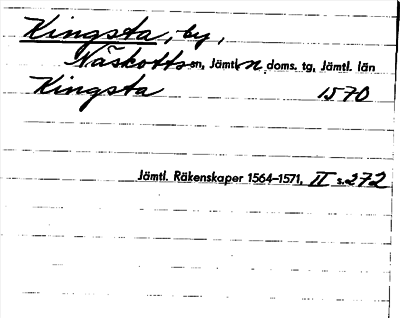 Kingsta, by,
Näskotts sn, Jämtl. n. doms. tg, Jämtl. län
Kingsta 1570
Jämtl. Räkenskaper 1564–1571, II s. 272